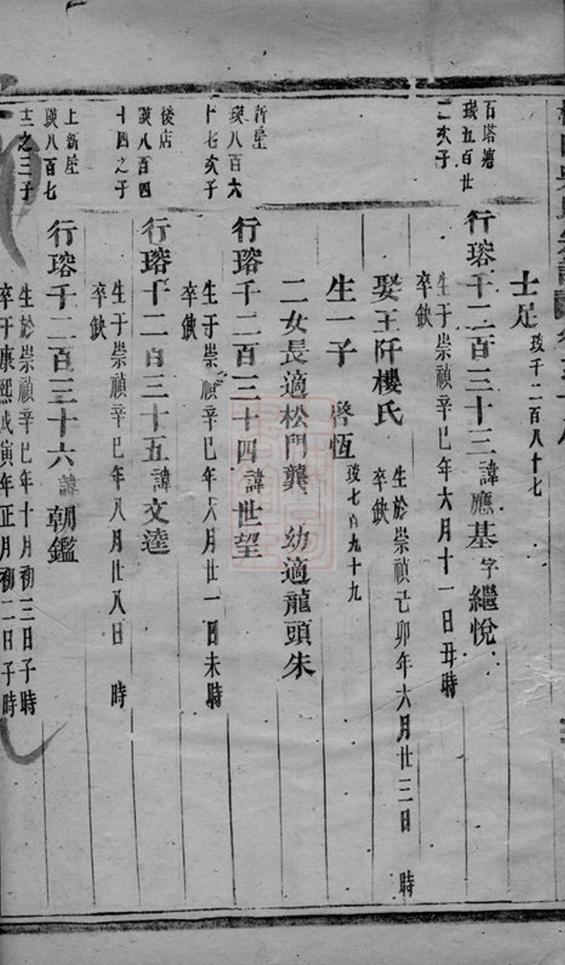 士足 玫千二百八十七
石塔塘
瑛五百廿
二亥子
行瑢千二百三十三諱應基字繼悅
生于崇禎辛巳年六月十一日丑時
卒缺
娶王阡樓氏
生於崇禎己卯年六月廿三日 時
卒缺
生一子 啓恆 玫七百九十九
二女長適松門龔 幼適龍頭朱
新屋
瑛八百六
十七亥子
行瑢千二百三十四諱世望
生于崇禎辛巳年八月廿一日未時
卒缺
後店
瑛八百四
十四之子
行瑢千二百三十五諱文逵
生于崇禎辛巳年八月廿八日 時
卒缺
上新屋
瑛八百七
十二之三子
行瑢千二百三十六諱朝鑑
生於崇禎辛巳年十月初三日子時
卒于康熙戊寅年正月初二日子時